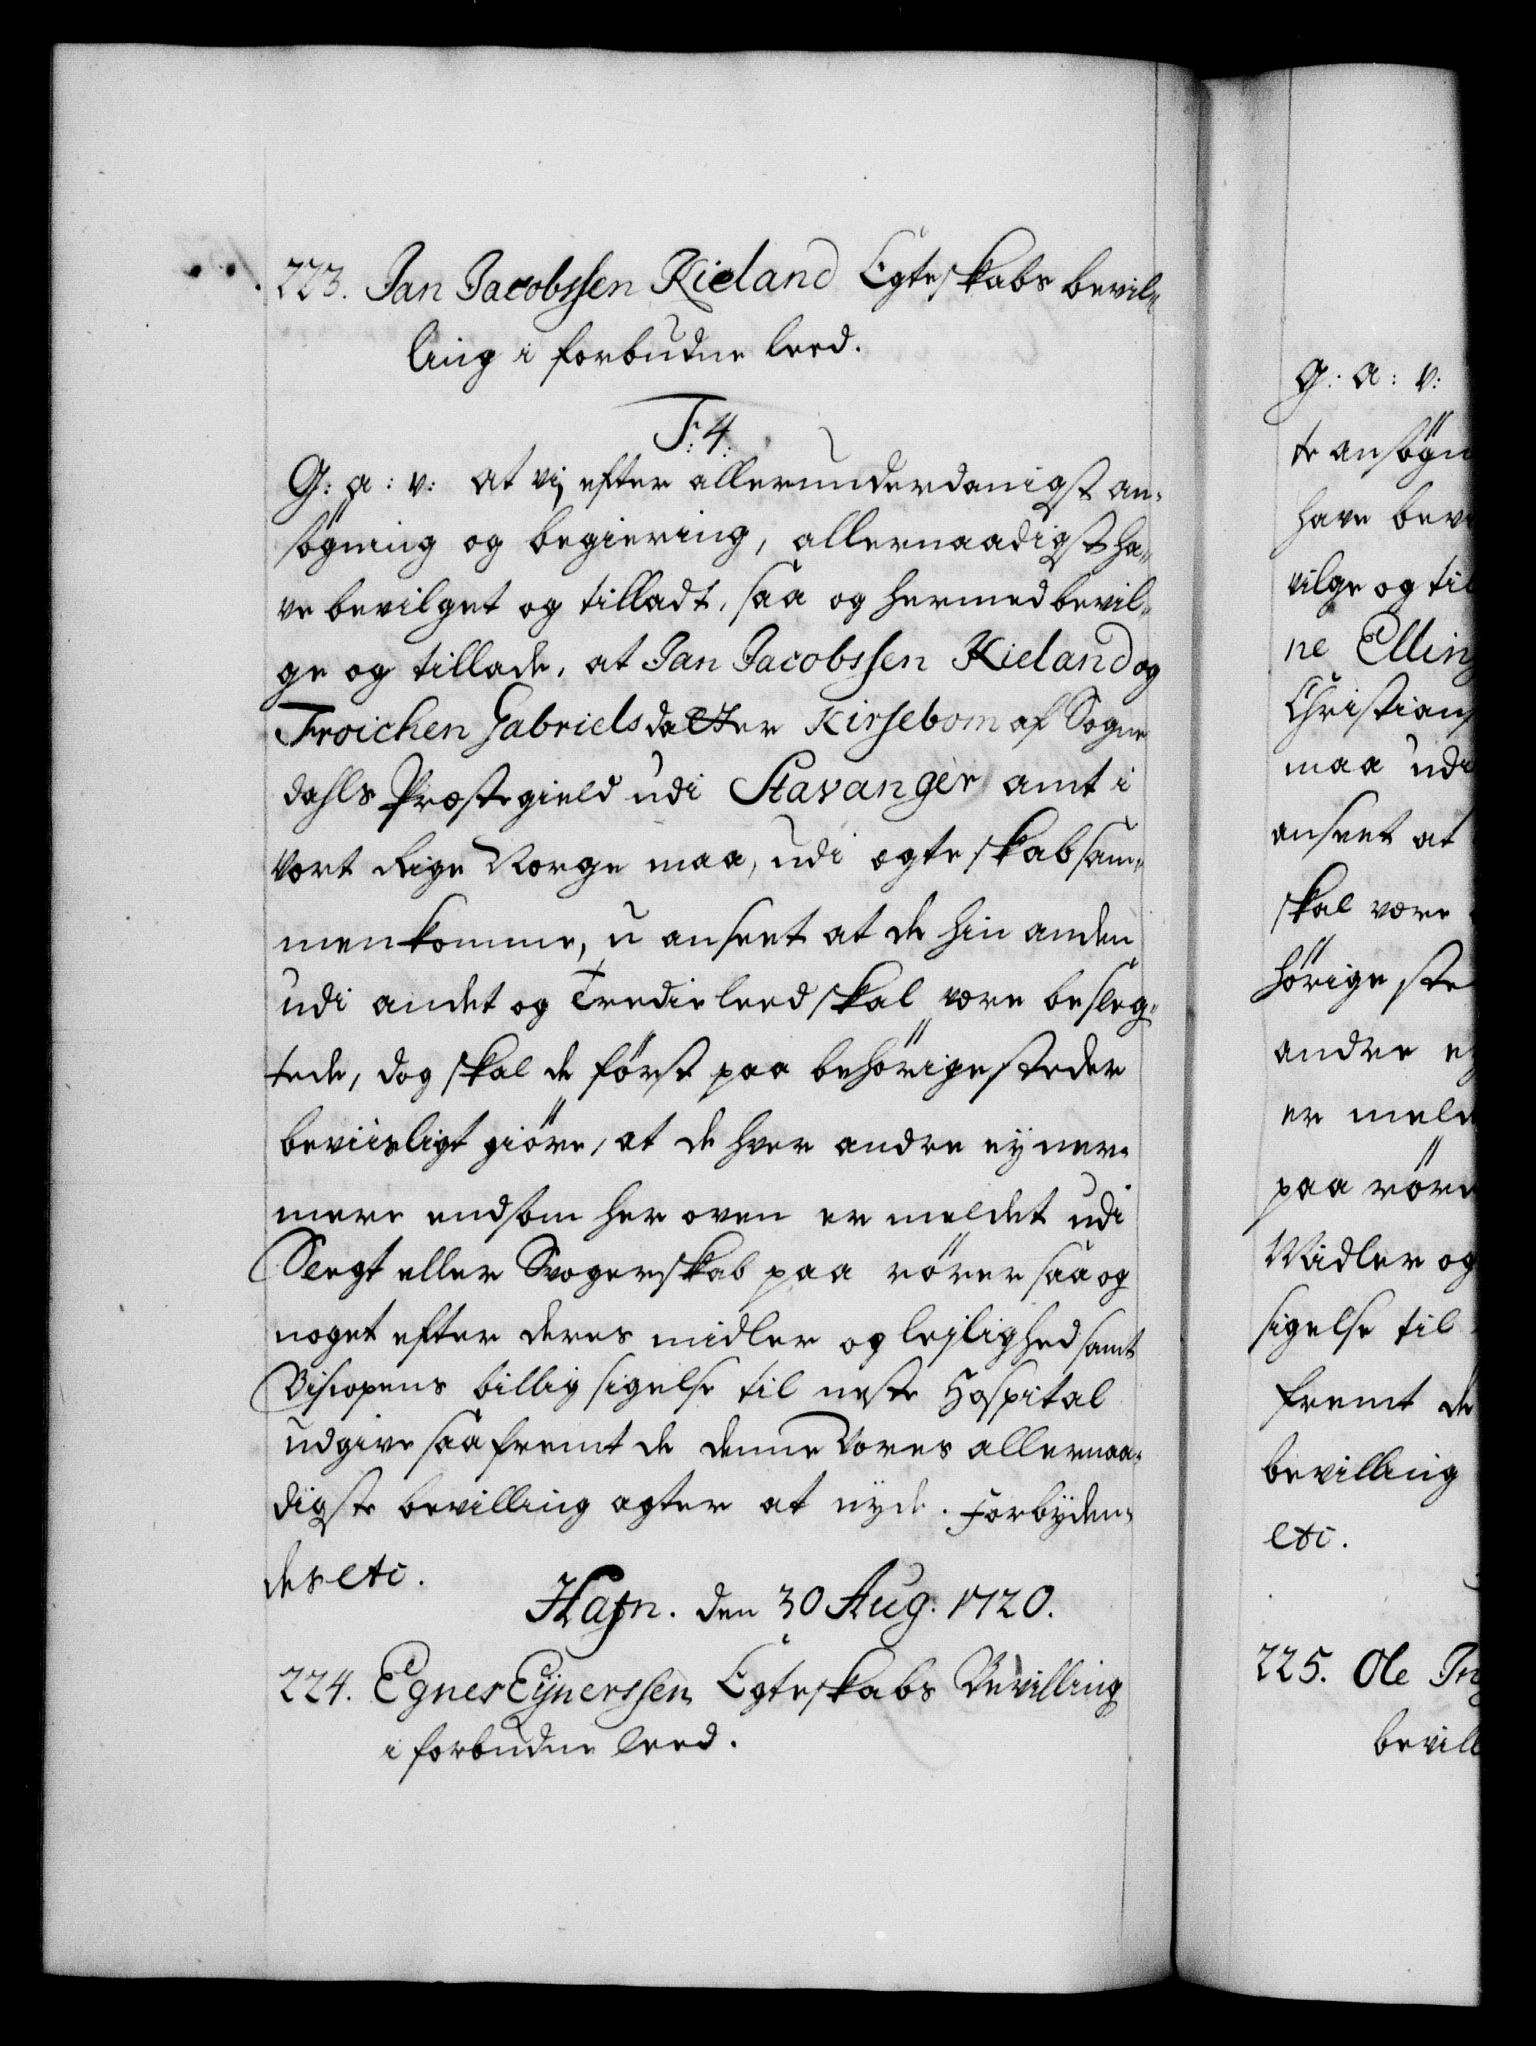 223. Jan Jacobssen Kieland Egteskabs bevil-
ling i forbudne leed.
F: 4:
G: a: v: at vi, efter allerunderdanigst an-
søgning og begiering, allernaadigst ha-
ve bevilget og tilladt, saa og hermed bevil-
ge og tillade, at Jan Jacobssen Kieland og
Froichen Gabrielsdatter Kirsebom af Sogne
dahls Præstegield udi Stavanger amt i
vort Rige Norge maa, udi egteskab sam-
menkomme, u anseet at de hin anden
udi andet og Tredie leed skal være besleg-
tede, dog skal de først paa behørige steder
beviisligt giøre, at de hver andre ey ner-
mere end som her oven er meldet udi
Slegt eller Svogerskab paa rører saa og
noget efter deres midler og lejlighed samt
Biscopens billig sigelse til neste Hospital
udgive saafremt de denne Vores allernaa-
digste bevilling agter at nyde. Forbyden-
des etc.
Hafn. den 30 Aug: 1720.
224. Egner Eynerssen Egteskabs Bevilling
i forbudne leed.
G: a: v:
te ansøgn
have bev
vilge og til
ne Elling
Christians
maa udi
anseet at
skal være
hørige ste
andre ey
er meld
paa røre
Midler og
sigelse til
fremt de
bevilling
etc.
225. Ole
bevill